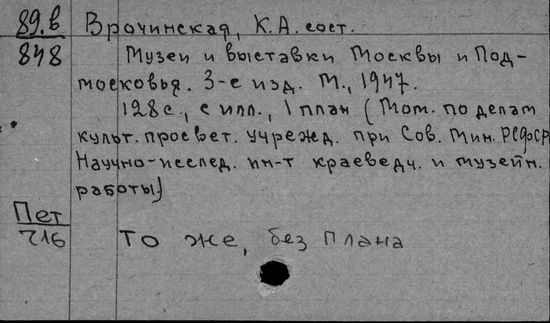 89.в Врочинская, К.А. сост.
848 Музеи и выставки Москвы и Под-
московья. 3-е изд. М., 1947.
128 с., с илл., 1 план (Ком. по делам
культ. просвет. учрежд. при Сов. Мин. РСФСР
Научно-исслед. ин-т краеведч. и музейн.
работы)
Пет
716 То же, без плана